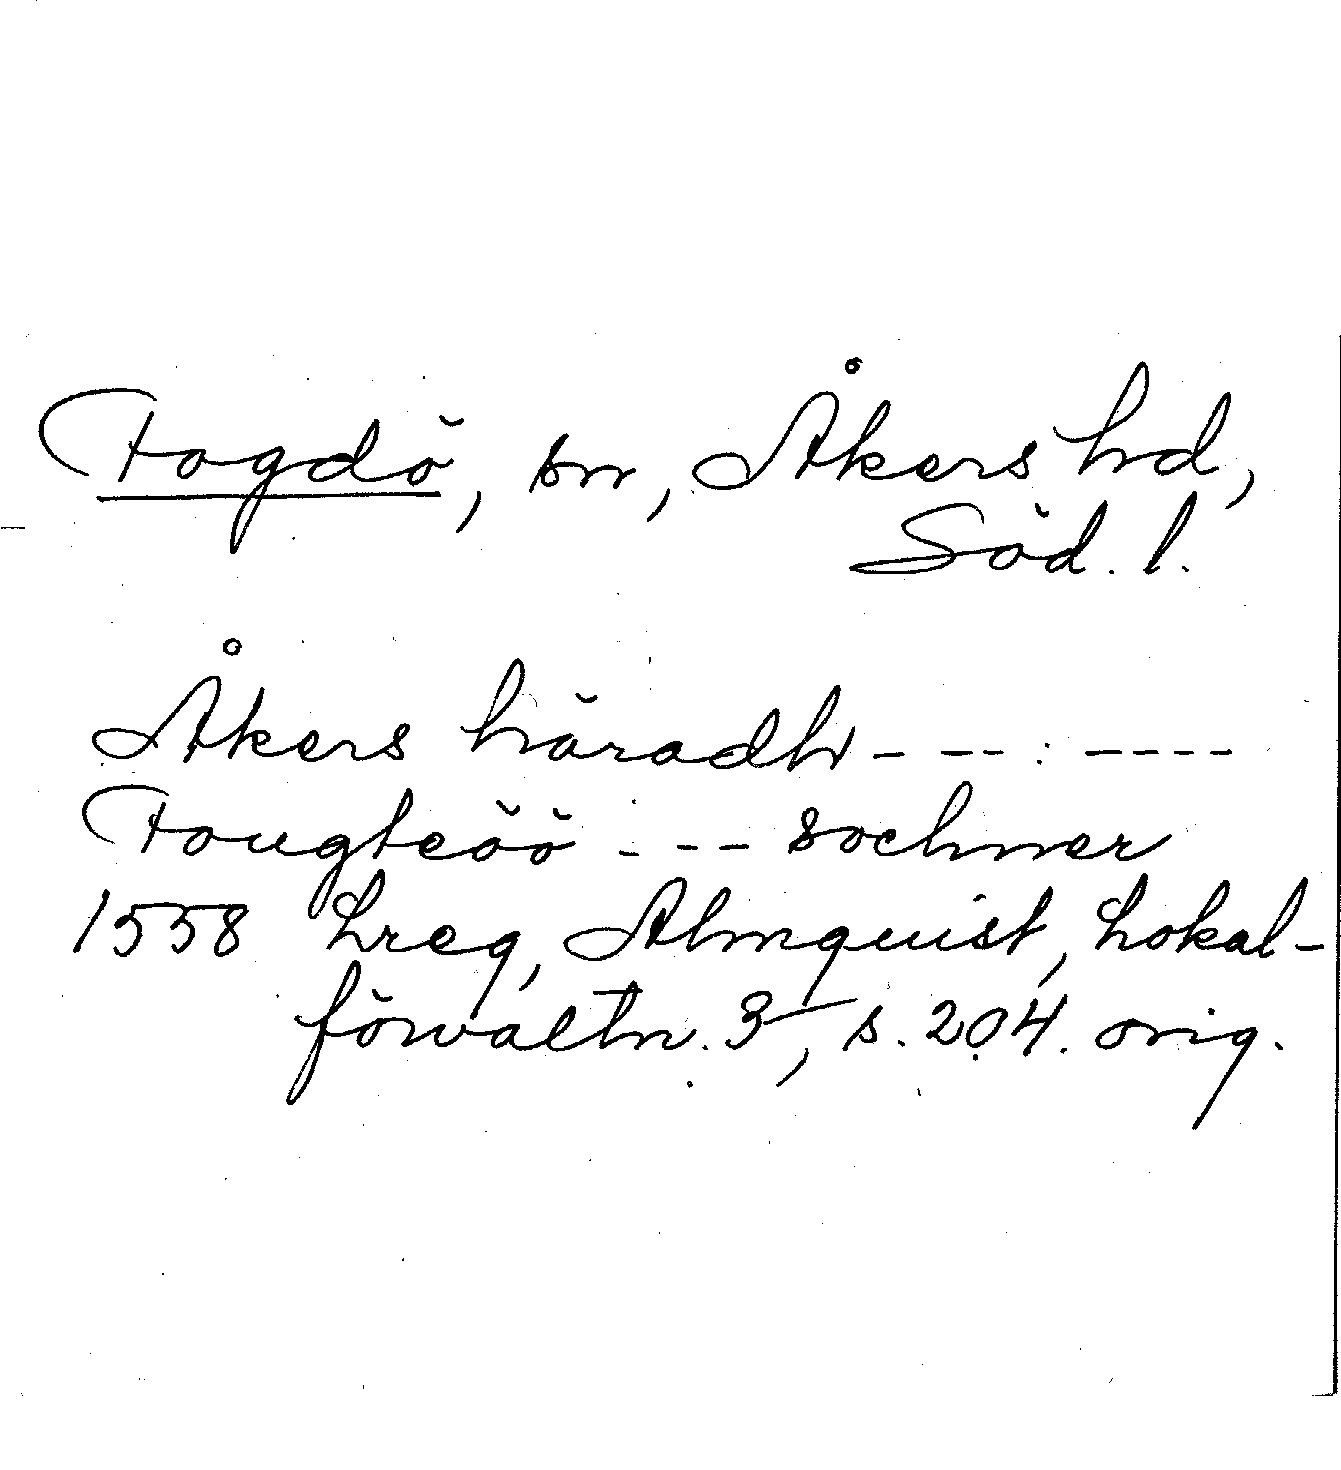 Fogdö, sn, Åkers hd,
Söd. l.
Åkers häradh - - - - : - - - -
Fougteöö - - - - sochner
1558 Lreg, Almquist, Lokal-
förvaltn. 3, s. 204. orig.